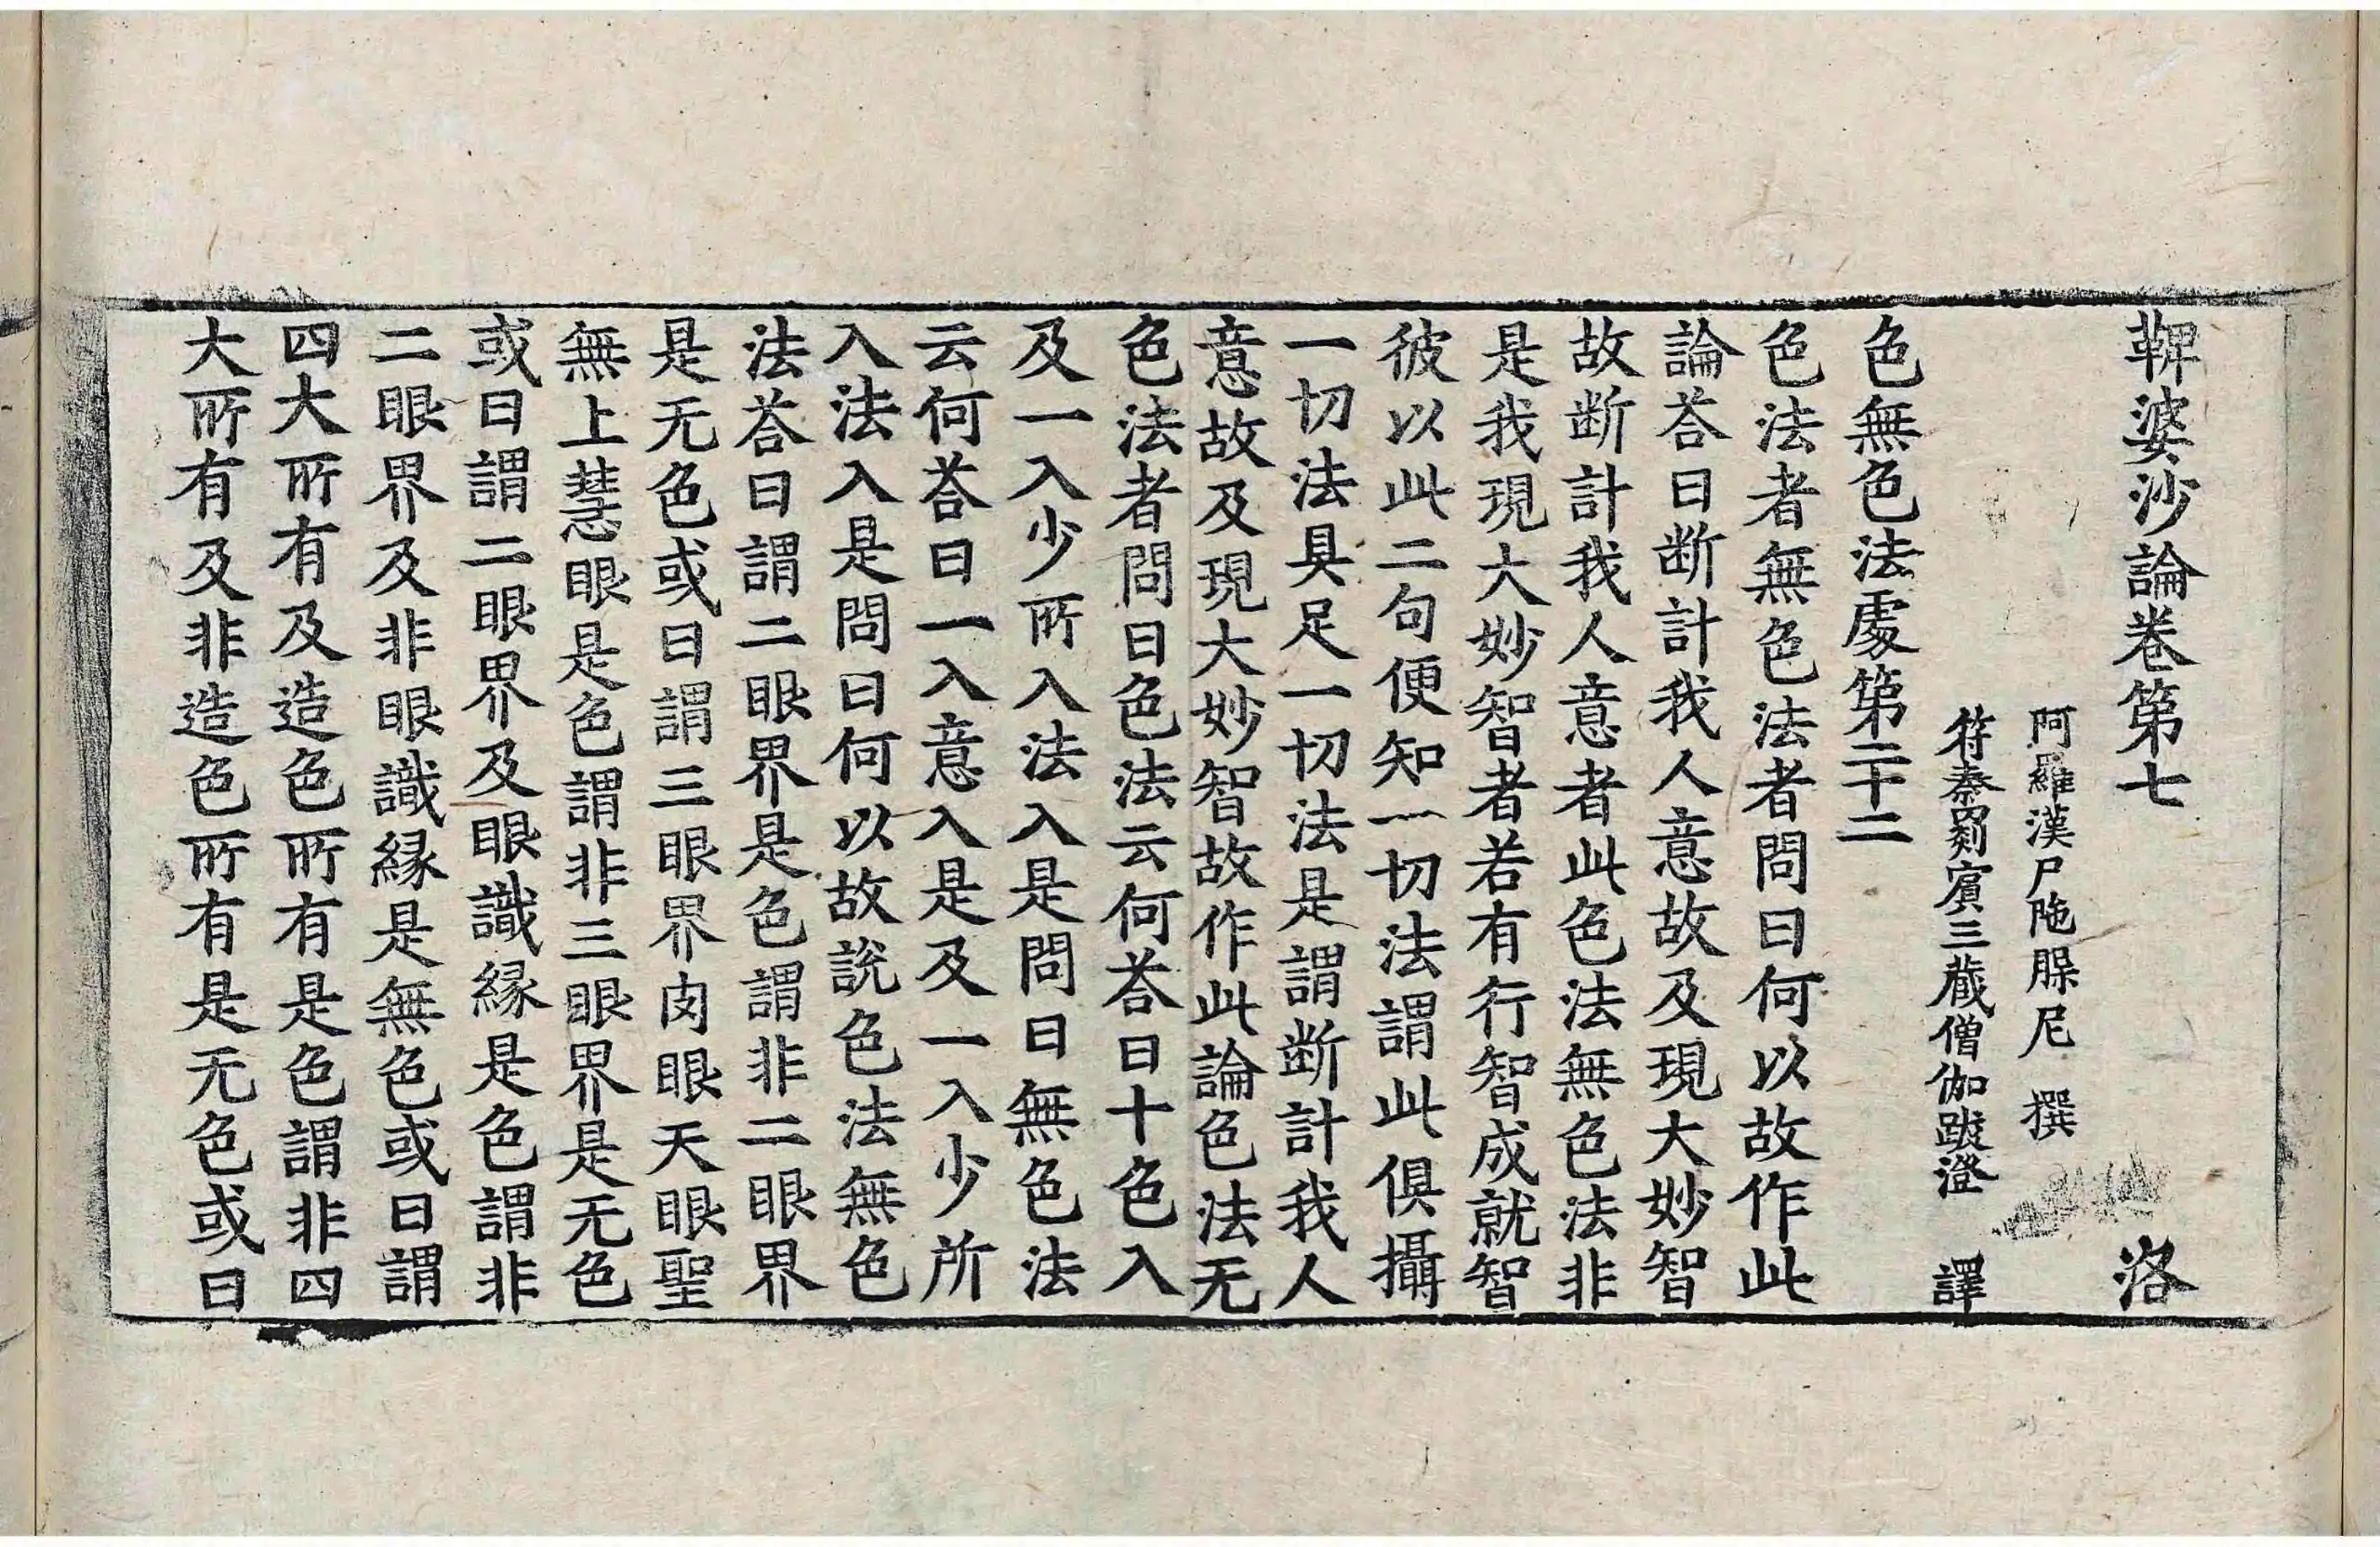 鞞婆沙論卷第七 洛
阿羅漢尸陁腂尼 撰
符秦罽賓三藏僧伽跋澄 譯
色無色法處第二十二
色法者無色法者問曰何以故作此
論荅曰断計我人意故及現大妙智
故断計我人意者此色法無色法非
是我現大妙智者若有行智成就智
彼以此二句便知一切法謂此俱攝
一切法具足一切法是謂断計我人
意故及現大妙智故作此論色法无
色法者問曰色法云何荅曰十色入
及一入少所入法入是問曰無色法
云何荅曰一入意入是及一入少所
入法入是問曰何以故說色法無色
法荅曰謂二眼界是色謂非二眼界
是无色或曰謂三眼界肉眼天眼聖
無上慧眼是色謂非三眼界是无色
或曰謂二眼界及眼識緣是色謂非
二眼界及非眼識緣是無色或曰謂
四大所有及造色所有是色謂非四
大所有及非造色所有是无色或曰